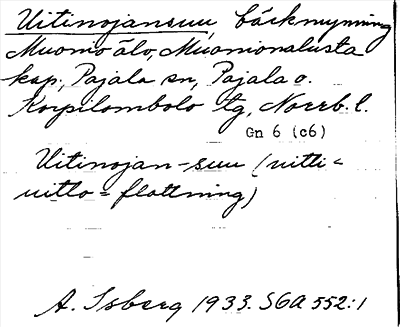 Uitinojansuu, bäckmynning
Muonio älv, Muonionalusta
kap., Pajala sn, Pajala o.
Korpilombolo tg, Norrb. l.
Gn 6 (c6)
Uitinojan-suu (uitti =
uitto = flottning)
A. Isberg 1933. SOA 552:1